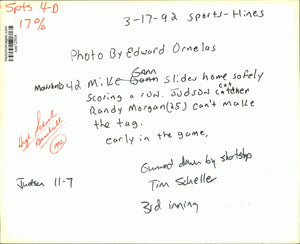 Spts 4-D
17%
3-17-92 sports-Hines
Photo By Edward Ornelas
42 Mike Gann slides home safely
scoring a run. Judson catcher
Randy Morgan (25) can't make
the tag.
early in the game,
High School
Baseball
Gunned down by shortstop
Tim Scheller
Judson 11-7
3rd inning